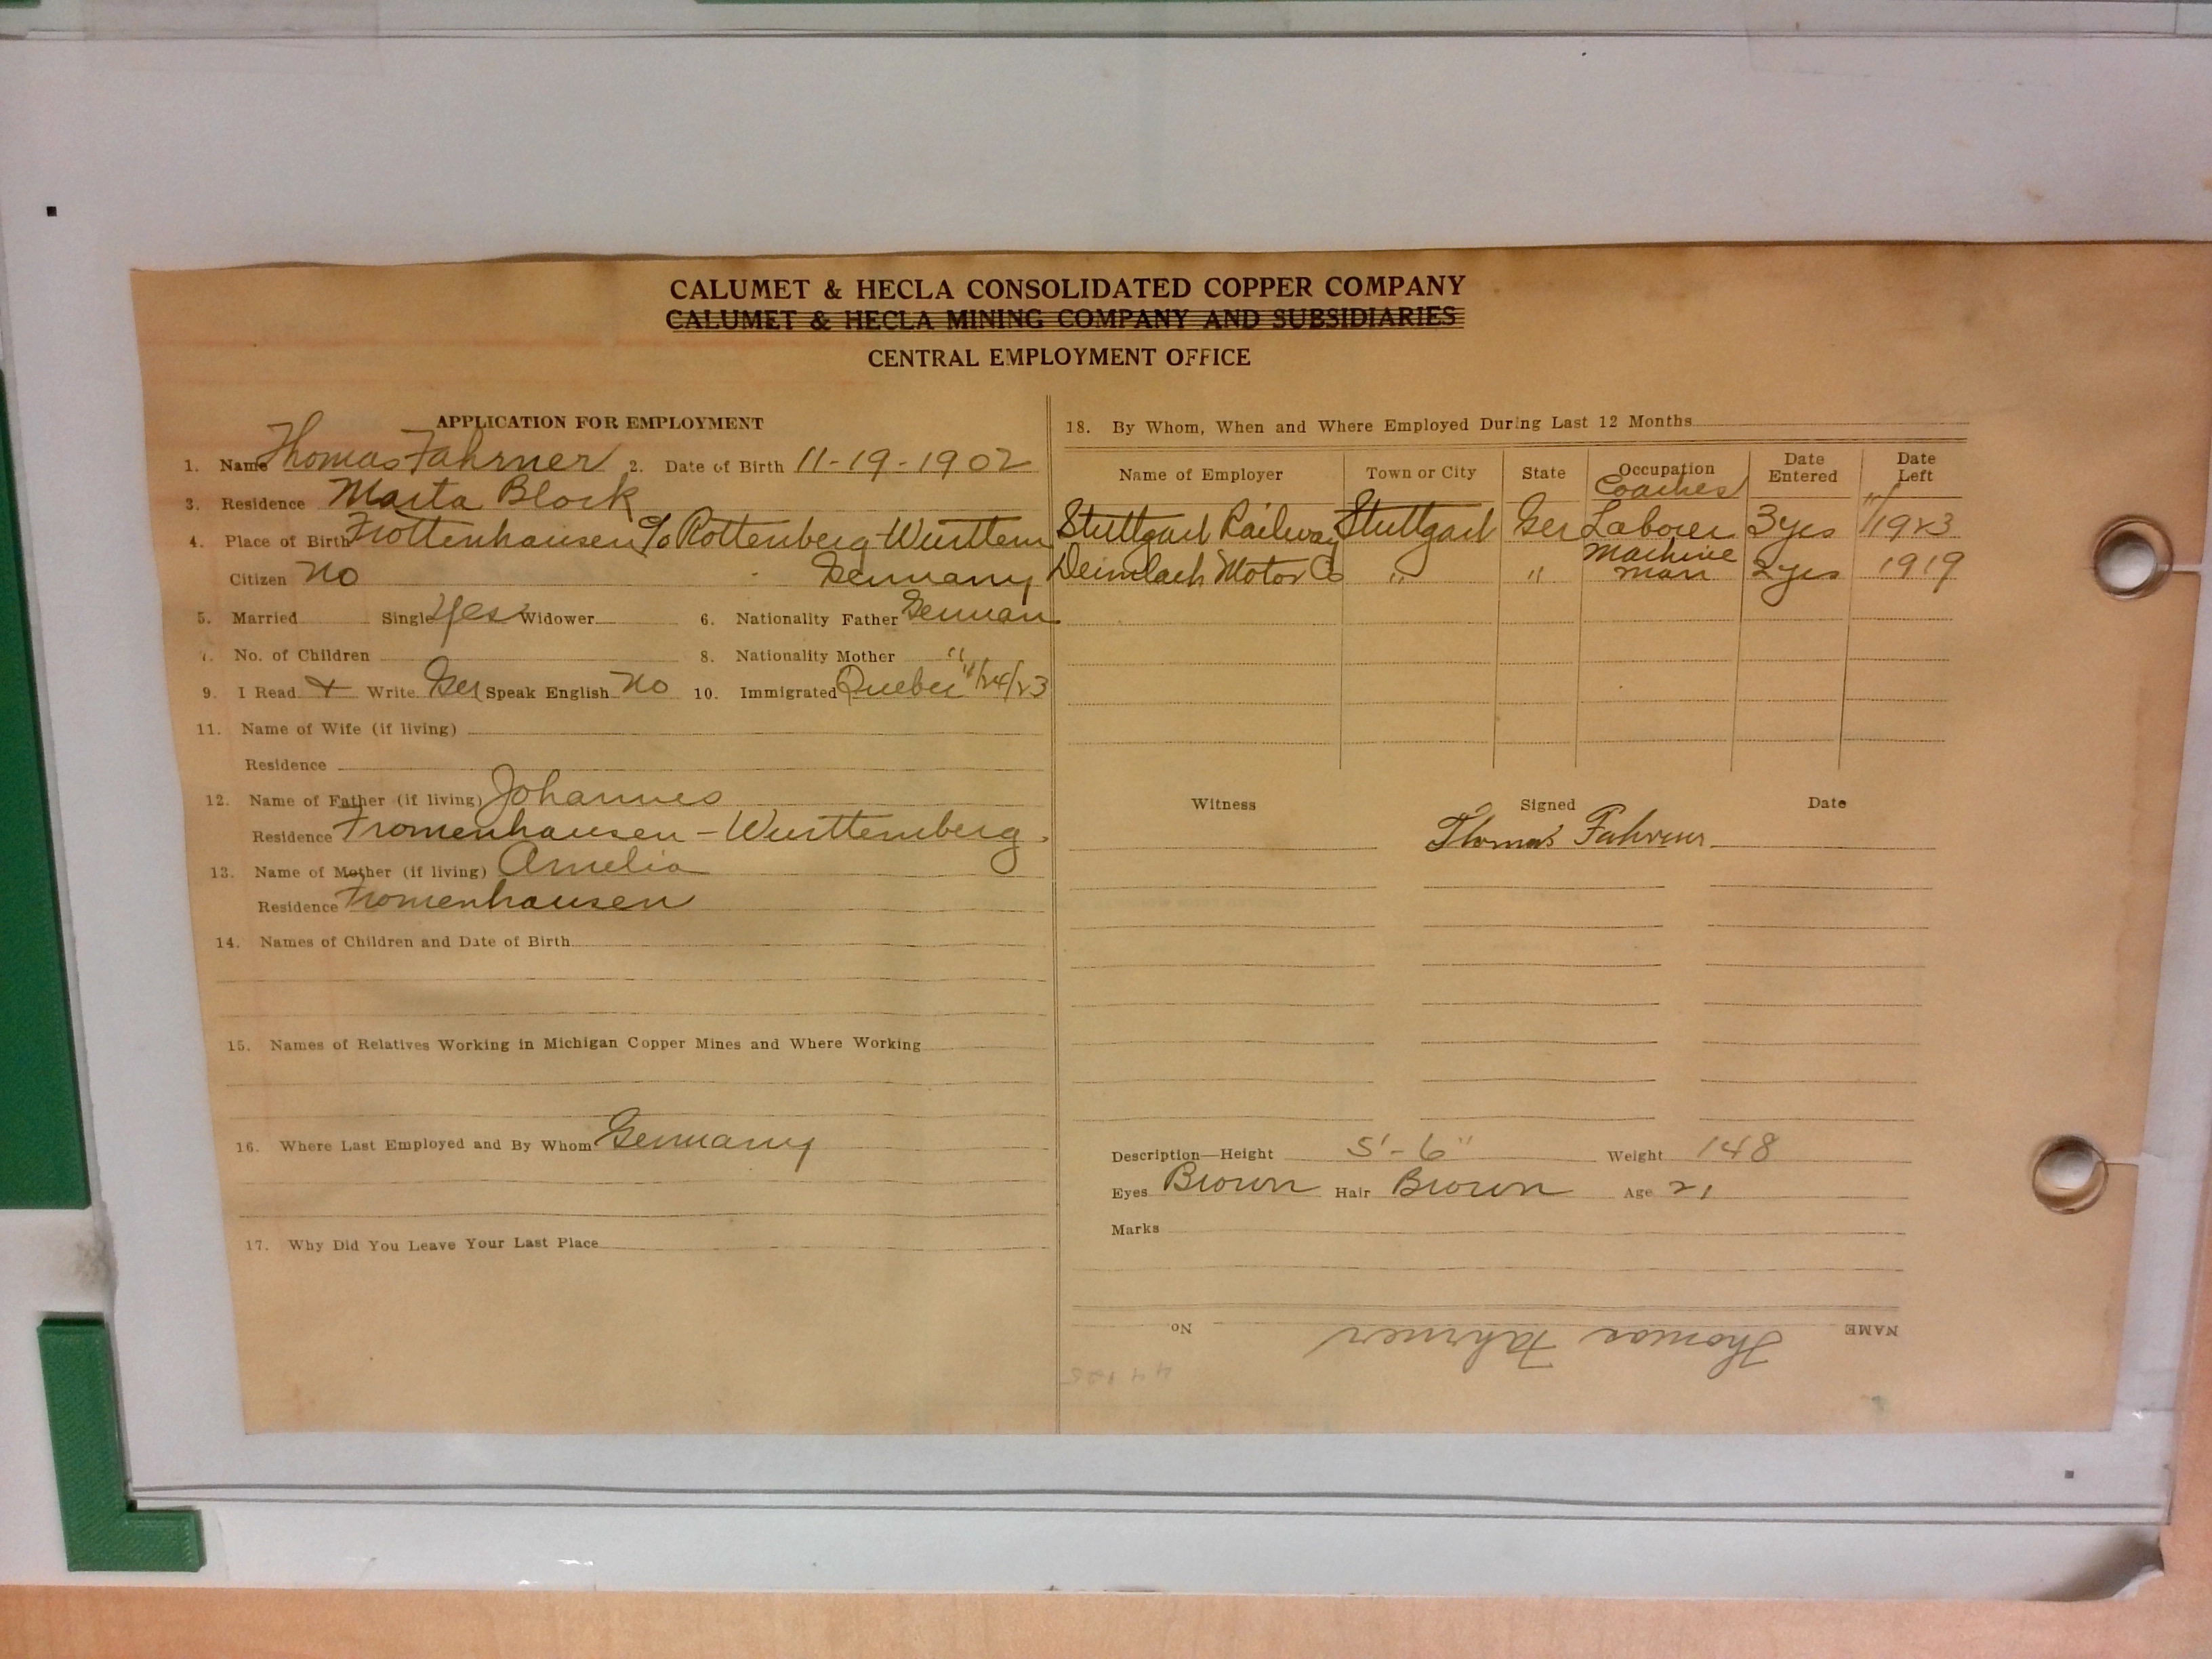 CALUMET & HECLA CONSOLIDATED COPPER COMPANY
CALUMET & HECLA MINING COMPANY AND SUBSIDIARIES
CENTRAL EMPLOYMENT OFFICE
APPLICATION FOR EMPLOYMENT
1. Name Thomas Fahrner 2. Date of Birth 11-19-1902
3. Residence Marta Block
4. Place of Birth Frottenhausen c/o Rottenberg-Wurttem
Citizen No Germany
5. Married Single Yes Widower 6. Nationality Father German
7. No. of Children 8. Nationality Mother "
9. I Read + Write Ger Speak English No 10. Immigrated Quebec 11/24/23
11. Name of Wife (if living)
Residence
12. Name of Father (if living) Johannes
Residence Fromenhausen - Wurttemberg.
13. Name of Mother (if living) Amelia
Residence Fromenhausen
14. Names of Children and Date of Birth
15. Names of Relatives Working in Michigan Copper Mines and Where Working
16. Where Last Employed and By Whom Germany
17. Why Did You Leave Your Last Place
18. By Whom, When and Where Employed During Last 12 Months
Name of Employer Town or City State Occupation Date Entered Date Left
Coaches
Stuttgart Railway Stuttgart Ger Laborer 3 yrs 11/1923
Machine
Motor Co " " man 2 yrs 1919
Witness Signed Date
Thomas Fahrner
Description—Height 5'-6" Weight 148
Eyes Brown Hair Brown Age 21
Marks
NAME Thomas Fahrner No